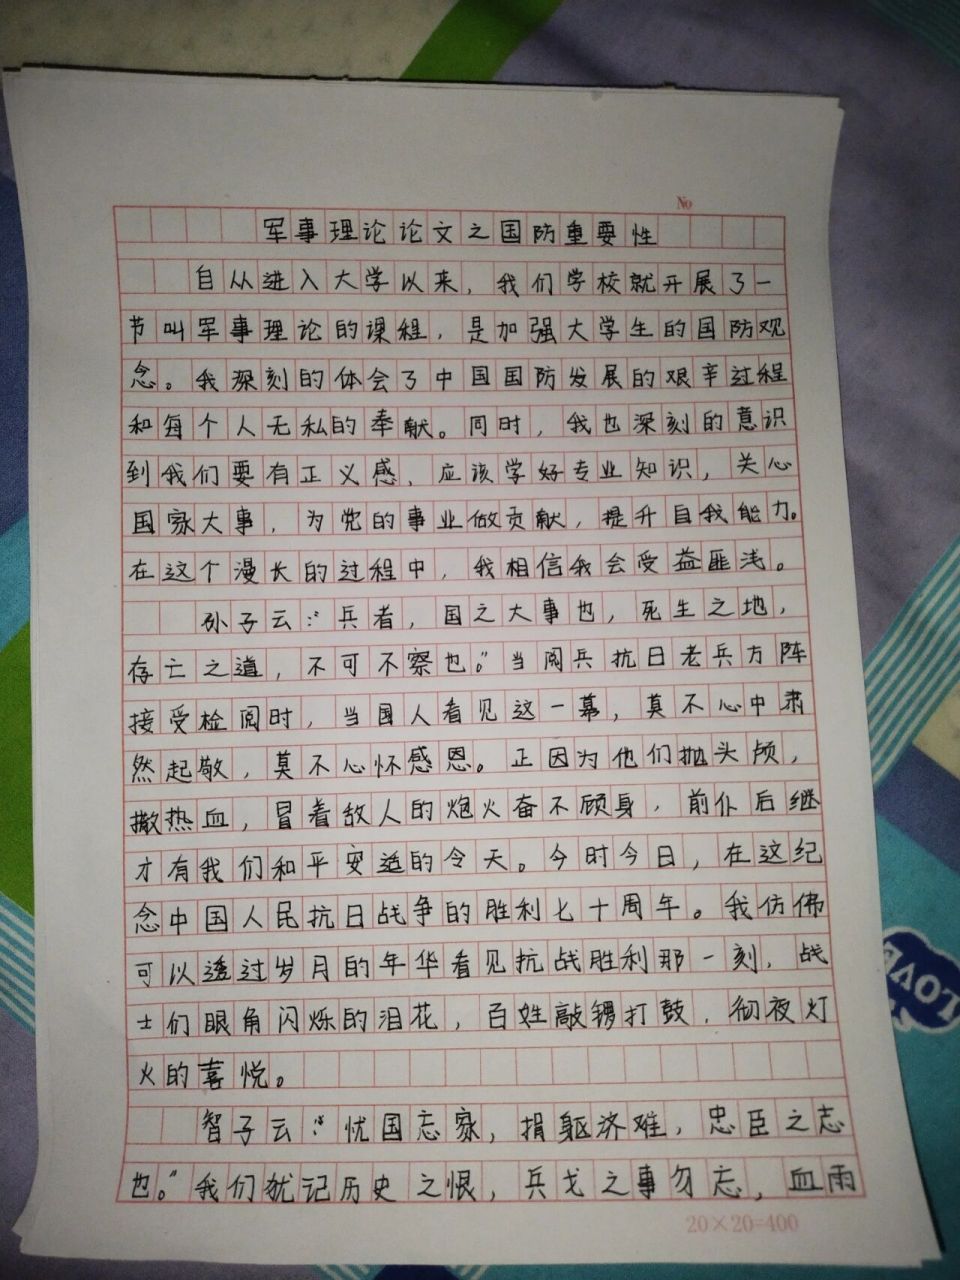 No
军事理论论文之国防重要性
自从进入大学以来，我们学校就开展了一
节叫军事理论的课程，是加强大学生的国防观
念。我深刻的体会了中国国防发展的艰辛过程
和每个人无私的奉献。同时，我也深刻的意识
到我们要有正义感、应该学好专业知识，关心
国家大事，为党的事业做贡献，提升自我能力。
在这个漫长的过程中，我相信我会受益匪浅。
孙子云：“兵者，国之大事也，死生之地，
存亡之道，不可不察也。”当阅兵抗日老兵方阵
接受检阅时，当国人看见这一幕，莫不心中肃
然起敬，莫不心怀感恩。正因为他们抛头颅，
撒热血，冒着敌人的炮火奋不顾身，前仆后继
才有我们和平安逸的今天。今时今日，在这纪
念中国人民抗日战争的胜利七十周年。我仿佛
可以透过岁月的年华看见抗战胜利那一刻，战
士们眼角闪烁的泪花，百姓敲锣打鼓，彻夜灯
火的喜悦。
智子云：“忧国忘家，捐躯济难，忠臣之志
也。”我们犹记历史之恨，兵戈之事勿忘，血雨
20×20=400
LOVE